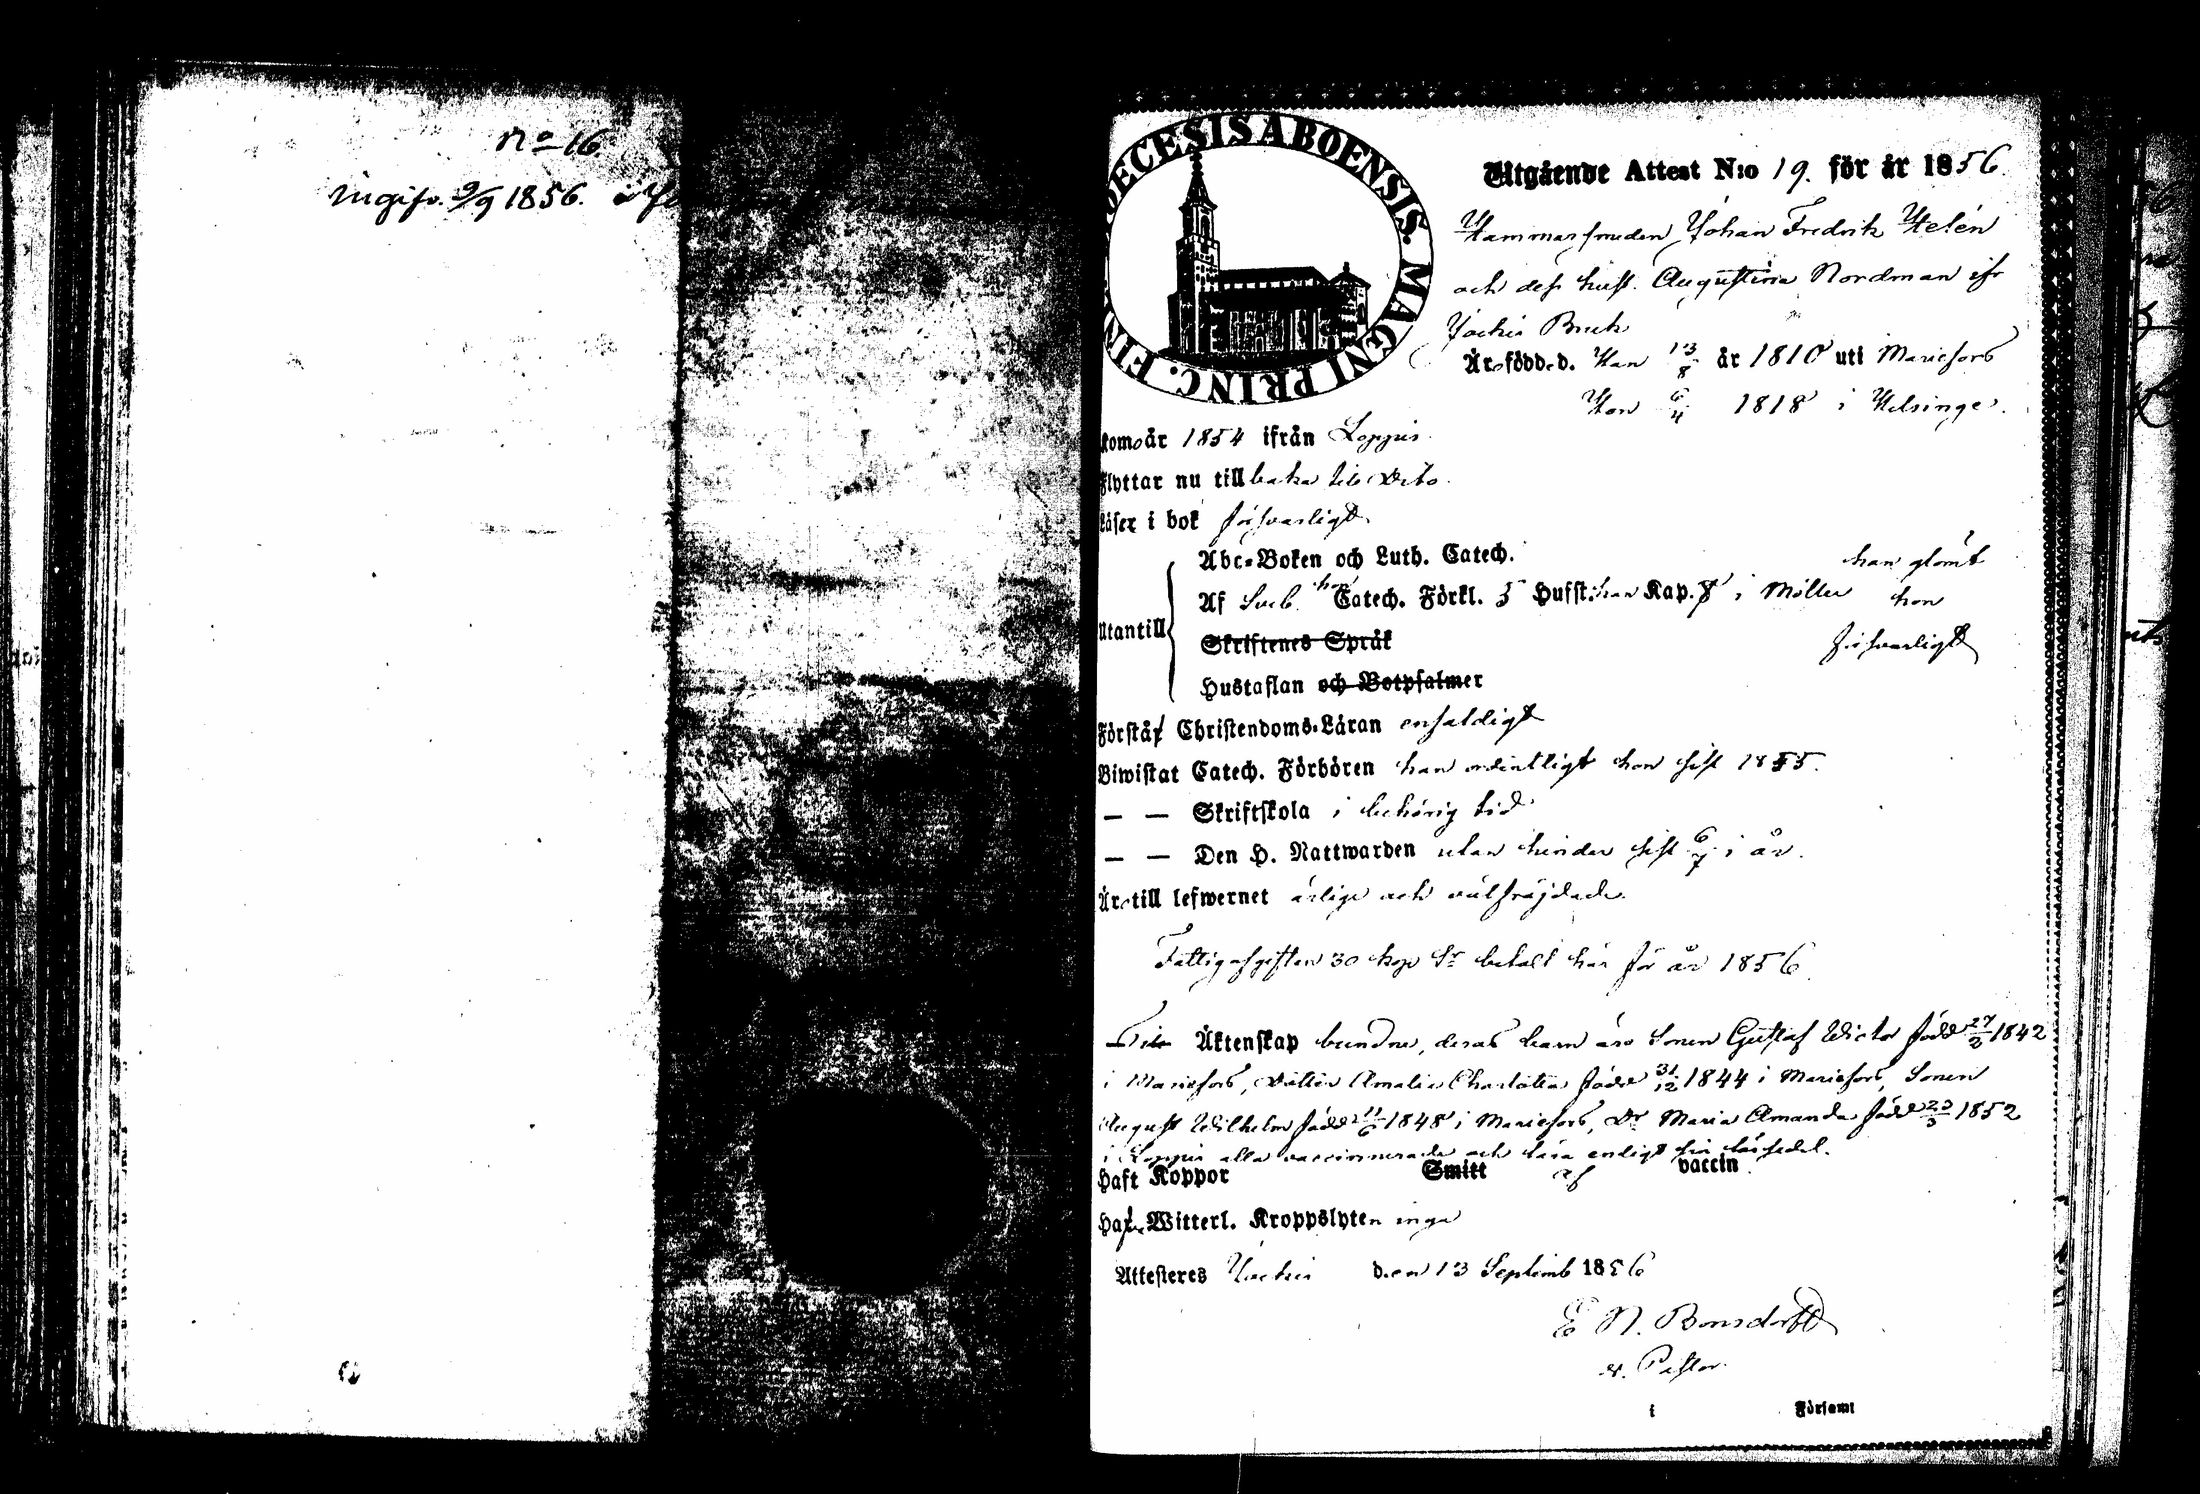 No 16.
Ingifv. 9/9 1856.
DECESIS ABOENSIS. MAGNI PRINC. FIN
Utgående Attest N:o 19. för år 1856.
Hammarsmeden Johan Fredrik Helén
och dess hust. Augustina Nordman ifr
Jockis Bruk
Äro född.e d. Han 13/8 år 1810 uti Mariefors
Hon 6/4 1818 i Helsinge.
komo år 1854 ifrån Loppis.
Flyttar nu tillbaka till dito.
Läser i bok försvarligt
Abc-Boken och Luth. Catech. han glömt
Af Sveb. hon Catech. Förkl. 3 Hufst. han Kap. 8 i Möller hon
Utantill
Skriftenes Språk försvarligt
Hustaflan och Botpsalmer
Förstå Christendoms-Läran enfaldigt
Biwistat Catech. Förhören han ordentligt hon sist 1855.
— — Skriftskola i behörig tid
— — Den H. Nattwarden utan hinder sist 6/7 i år.
Äro till lefwernet ärlige och välfräjdade.
Fattigafgiften 30 kop Sr betalt här för år 1856.
Till Äktenskap bundne, deras barn äro Sonen Gustaf Victor född 27/2 1842
i Mariefors, Dottren Amalia Charlotta född 31/12 1844 i Mariefors, Sonen
August Wilhelm född 11/6 1848 i Mariefors, Dr Maria Amanda född 23/3 1852
i Loppis alla vaccinerade och läsa enligt sin läsesedel.
Haft Koppor Smitt af vaccin
Hafva Witterl. Kroppslyten inga
Attesteres Jockis d.en 13 Septemb 1856
E N. Bonsdorff
v. Pastor.
i Församl